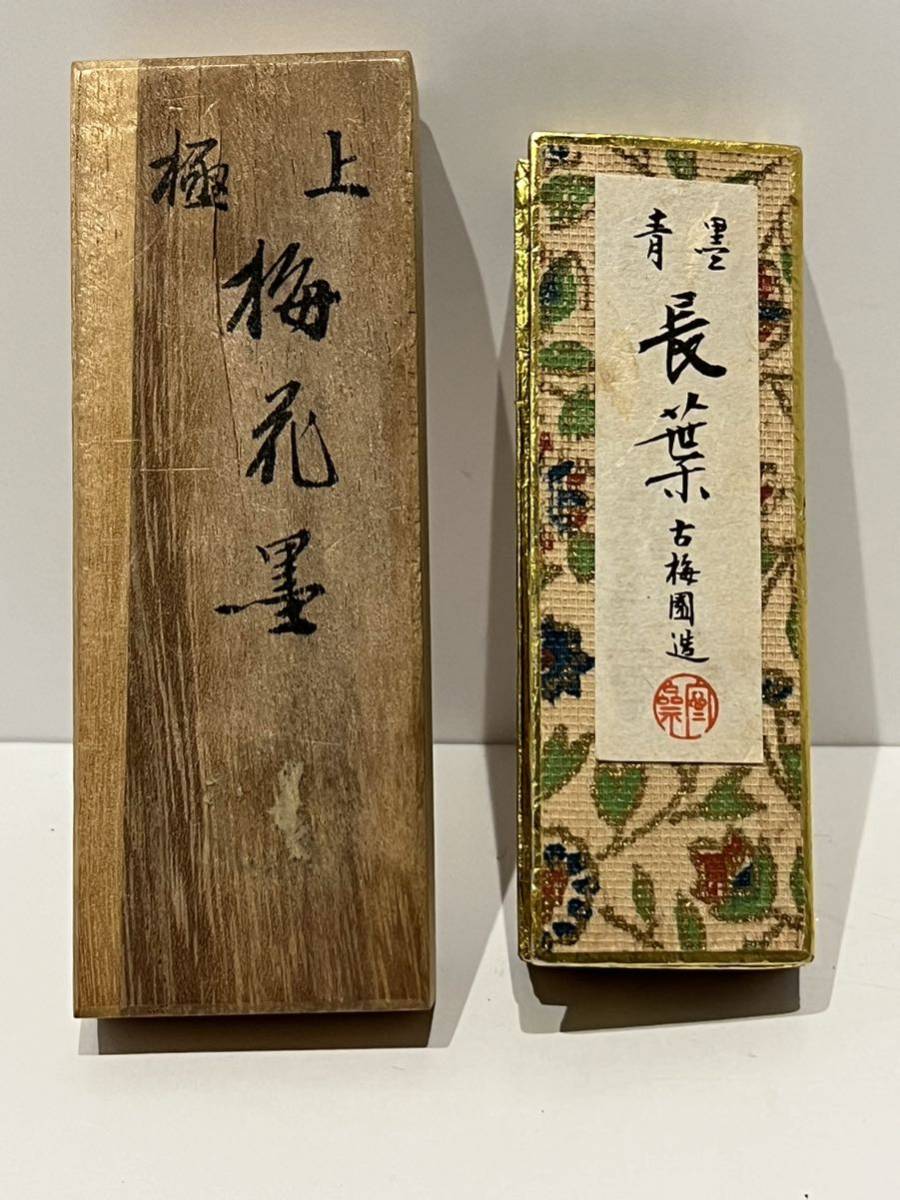 極上
梅花墨
青墨
長葉
古梅園造